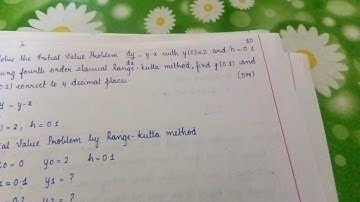 10
Solve the Initial Value Problem dy/dx = y-x with y(0)=2 and h=0.1
using fourth order classical Range-kutta method, find y(0.1) and
0.2) correct to 4 decimal places. (5M)
y-x
=2, h=0.1
Value Problem by Range-kutta method
y0=2 h=0.1
y1=?
y2=?